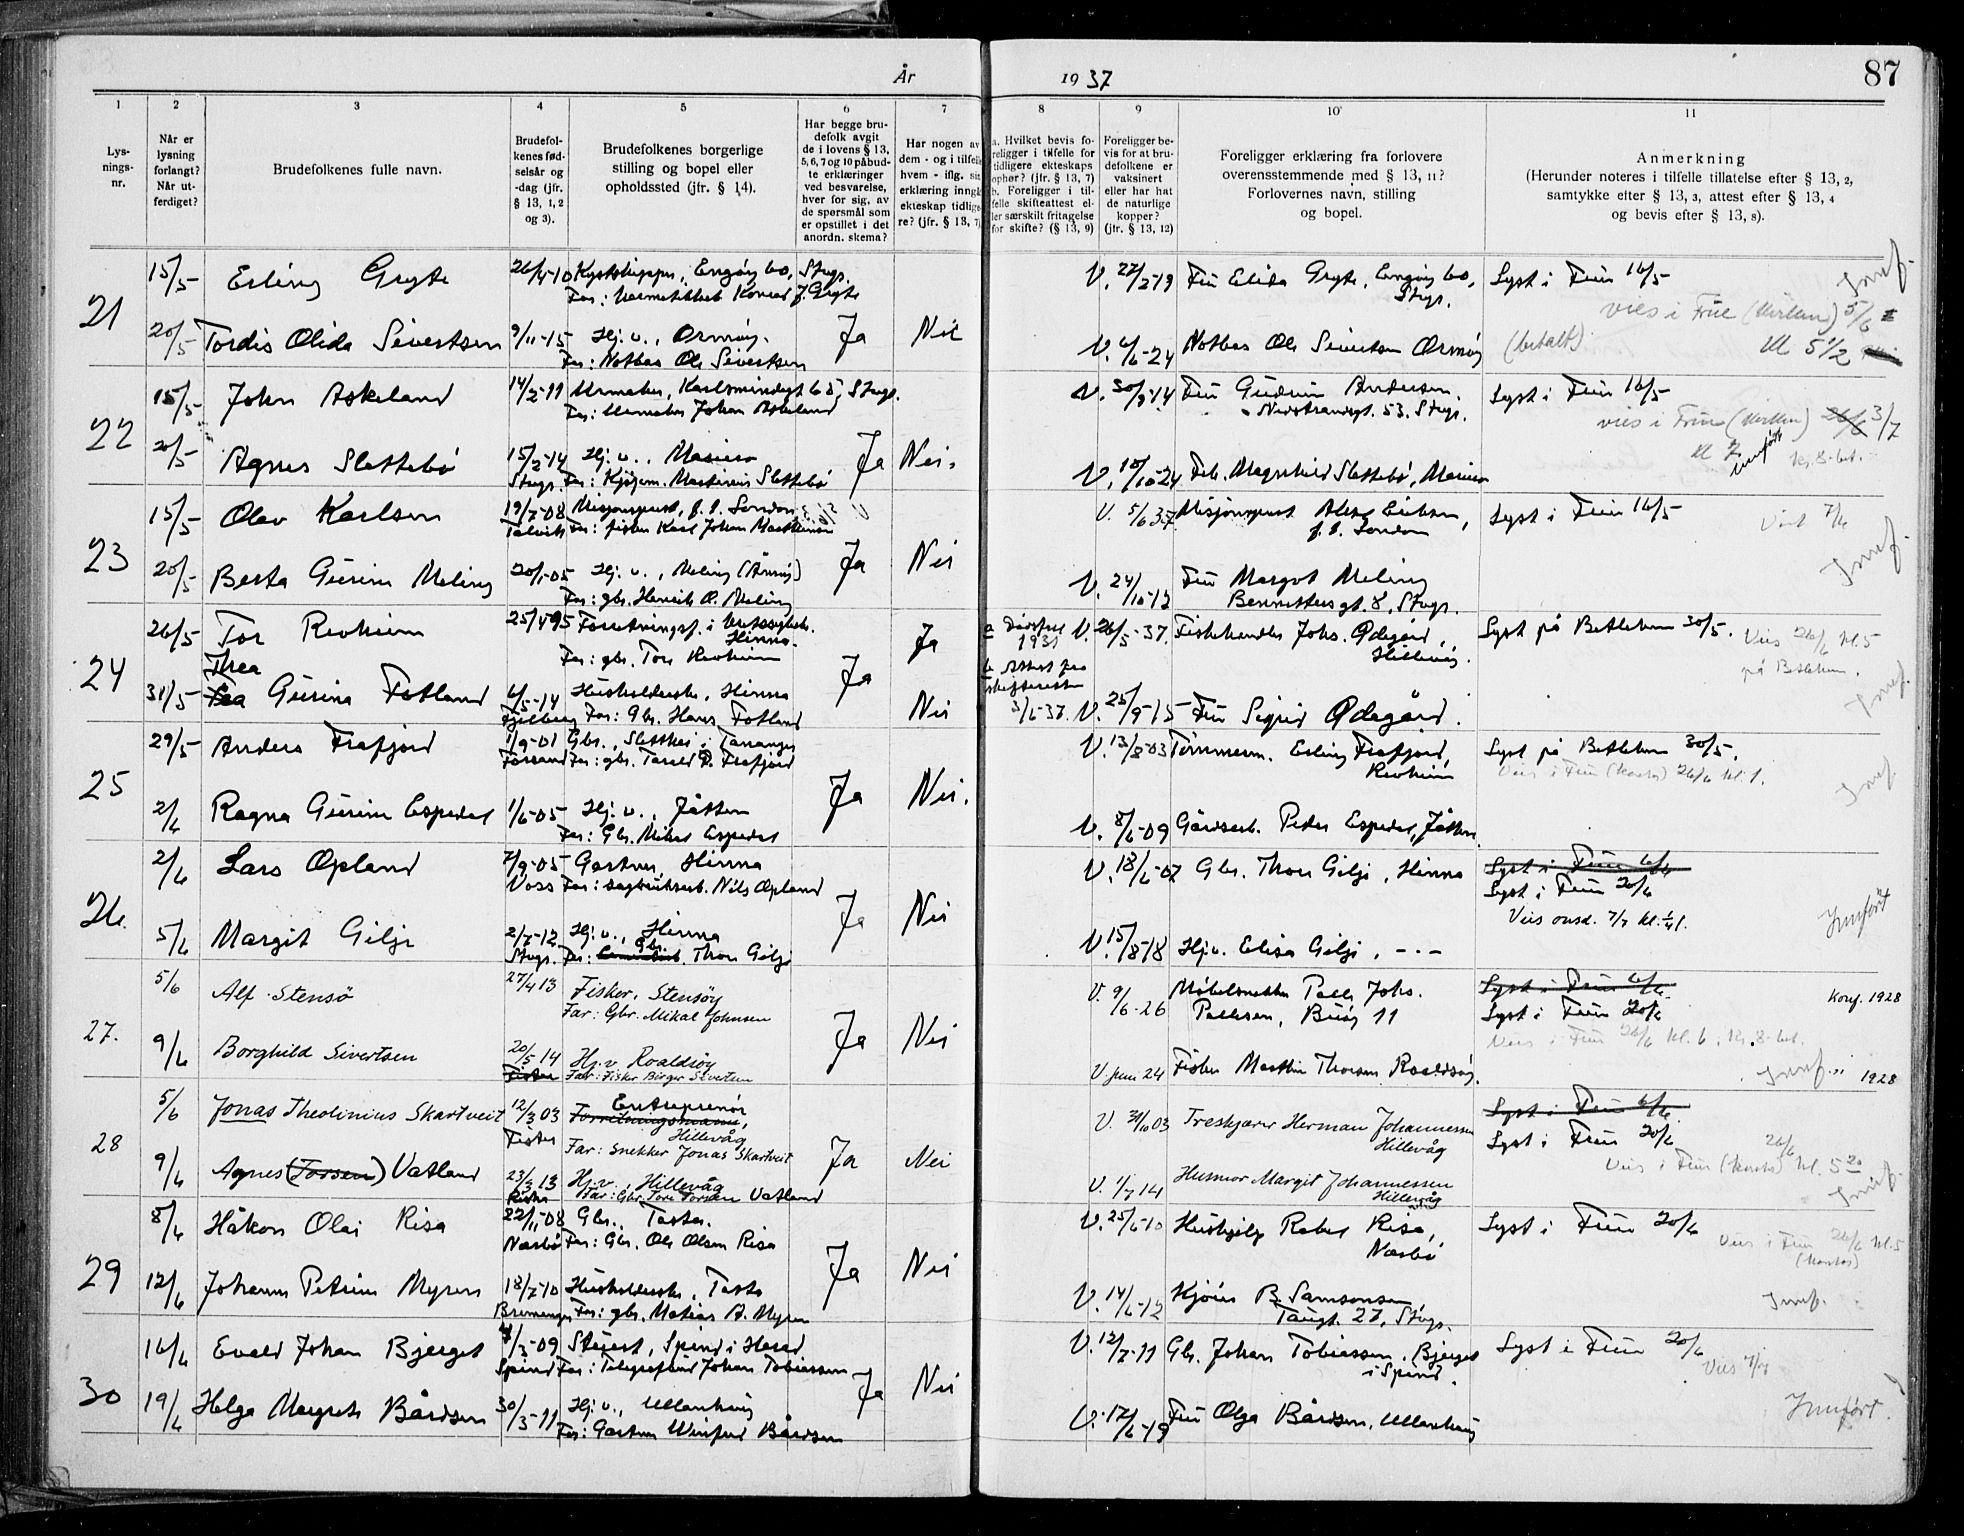 År 1937
87
1 2 3 4 5 6 7 8 9 10 11
Lysningsnr.
Når er lysning forlangt? Når utferdiget?
Brudefolkenes fulle navn.
Brudefolkenes fødselsår og -dag (jfr. § 13, 1, 2 og 3).
Brudefolkenes borgerlige stilling og bopel eller opholdssted (jfr. § 14).
Har begge brudefolk avgit de i lovens § 13, 5, 6, 7 og 10 påbudte erklæringer ved besvarelse, hver for sig, av de spørsmål som er opstillet i det anordn. skema?
Har nogen av dem - og i tilfelle hvem - iflg. sin erklæring inngå ekteskap tidligere? (jfr. § 13, 7)
a. Hvilket bevis foreligger i tilfelle for tidligere ekteskaps ophør? (jfr. § 13, 7)
b. Foreligger i tilfelle skifteattest eller særskilt fritagelse for skifte? (§ 13, 9)
Foreligger bevis for at brudefolkene er vaksinert eller har hat de naturlige kopper? (jfr. § 13, 12)
Foreligger erklæring fra forlovere overensstemmende med § 13, 11? Forlovernes navn, stilling og bopel.
Anmerkning
(Herunder noteres i tilfelle tillatelse efter § 13, 2, samtykke efter § 13, 3, attest efter § 13, 4 og bevis efter § 13, 8).
21
15/5 Erling Gryte 26/4-10 Engöy 60, Stvgr. V. 22/2-19 Fru Elida Gryte, Engöy 60, Stvgr. Lyst i Frue 16/5
Far: Konrad J. Gryte
vies i Frue 5/6
20/5 Tordis Olida Sivertsen 9/11-15 Hj. v., Ormöy. Ja Nei V. 6/6-24 Notbas Ole Sivertsen Ormöy (betalt) kl 5 1/2
Far: Notbas Ole Sivertsen
22
15/5 John Askeland 14/2-11 Urmaker, Karlsmindegt 65, Stvgr. V. 30/9-14 Fru Gudrun Andersen, Nedstrandsgt. 53. Stvgr. Lyst i Fruen 16/5
Far: Urmaker Johan Askeland
vies i Frue 26/6 3/7
20/5 Agnes Slettebö 15/2-14 Hj. v., Mariero Ja Nei. V. 10/10-24 Frk. Magnhild Slettebö, Mariero
Stvgr. Far: Kjöpm. Martinius Slettebö
23
15/5 Olav Karlsen 19/7-08 Misjonsprest, f. t. London V. 5/6 37 Misjonsprest f. t. London Lyst i Fruen 16/5
Talvik Far: fisker Karl Johan
20/5 Berta Gurine Meling 20/1-05 Hj. v., Meling (Åmöy) Ja Nei V. 24/10-12 Fru Margot Meling
Far: gbr. Henrik A. Meling Bennettersgt. 8, Stvgr. Innf.
24
26/5 Tor Revheim 25/4 95 Hinna. Ja 1931 V. 26/5-37. Fiskehandler Johs. Ödegård, Hillevåg. Lyst på Betlehem 30/5. Vies 26/6 kl. 5 på Betlehem.
Far: gbr. Tore Revheim
Thea
31/5 Gurina Fotland 6/5-14 Husholderske, Hinna Ja Nei 3/6-37. V. 25/9-15 Fru Sigrid Ödegård. Innf.
Far: Gbr. Hans Fotland
25
29/5 Anders Frafjord 1/9-01 Gbr., V. 13/8-03 Tömmerm. Erling Frafjord, Revheim Lyst på Betlehem 30/5.
Forsand Far: gbr. Tarald P. Frafjord Vies i Frue 26/6 kl. 1.
2/6 Ragna Gurine Espedal 1/6-05 Hj. v., Jåtten Ja Nei. V. 8/6-09 Gårdsarb. Peder Espedal, Jåtten Innf.
Far: Gbr. Mikal Espedal
26.
2/6 Lars Opland 7/9-05 Gartner, Hinna V. 18/6-07 Gbr. Thore Gilje, Hinna Lyst i Fruen 6/6
Voss Far: sagbruksarb. Nils Opland Lyst i Fruen 20/6
Vies onsd. 7/7
5/6 Margit Gilje 2/7-12 Hj. v., Hinna Ja Nei V. 15/8-18 Hj. v. Elisa Gilje, - · - Innført
Stvgr. Far: Gbr. Thore Gilje
27.
5/6 Alf Stensö 27/4 13 Fisker, Stensöy V. 9/6-26 Möbelsnekker Palle Johs. Pallesen, Buöy 11 Lyst i Fruen 6/6 Konf. 1928
Far: Gbr. Mikal Johnsen Lyst i Fruen 20/6
Vies i Frue 26/6 kl. 6. Kr. 8 bet.
9/6 Borghild Sivertsen 20/5 14 Hj. v Roaldsöy Ja Nei V. Juni 24 Fisker Martin Thorsen Roaldsöy. Innf. 1928
Fister Far: Fisker Birger Sivertsen
28
5/6 Jonas Theolinius Skartveit 12/3 03 Entreprenör Forretningsmann, Hillevåg V. 31/10 03 Treskjærer Herman Johannessen Hillevåg Lyst i Fruen 6/6
Fister Far: Snekker Jonas Skartveit Lyst i Fruen 20/6
26/6 Vies i Frue kl. 5 20
9/6 Agnes (Torsen) Vatland 23/3 13 Hj. v., Hillevåg Ja Nei V. 1/7 14 Husmor Margit Johannessen Hillevåg Innf.
Far: Gbr. Tore Torsen Vatland
29
8/6 Håkon Olai Risa 22/11-08 Gbr., Tasta. V. 25/6-10 Hushjelp Rakel Risa, Nærbö Lyst i Fruen 20/6 Vies i Frue 26/6 kl. 5
Nærbö Far: Gbr. Ole Olsen Risa
12/6 Johanne Petrine Myren 18/7-10 Husholderske, Tasta Ja Nei V. 14/6-12 B. Samsonsen 27, Stvgr. Innf.
Bremanger Far: gbr. Matias A. Myren
30
16/6 Evald Johan Bjerget 4/3-09 Stuert, Spind i Herad V. 12/7-11 Gbr. Johan Tobiassen, Bjerget i Spind. Lyst i Fruen 20/6
Spind Far: Johan Tobiassen
19/6 Helga Margrete Bårdsen 30/3-11 Hj. v., Ullenhaug Ja Nei V. 17/6-19 Fru Olga Bårdsen, Ullenhaug Innført.
Far: Gartner Bårdsen